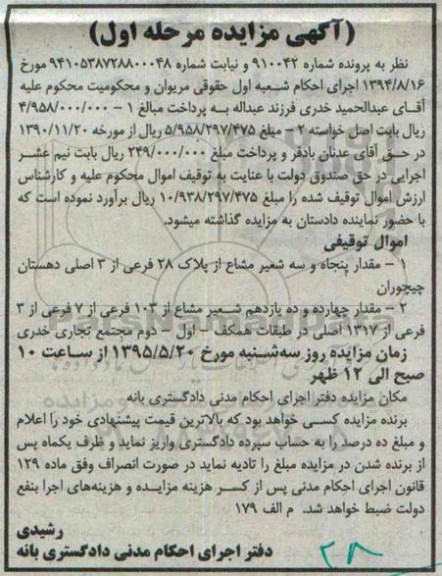 (آگهی مزایده مرحله اول)
نظر به پرونده شماره ۹۱۰۰۴۲ و نیابت شماره ۹۴۱۰۵۳۸۷۲۸۸۰۰۰۴۸ مورخ
۱۳۹۴/۸/۱۶ اجرای احکام شعبه اول حقوقی مریوان و محکومیت محکوم علیه
آقای عبدالحمید خدری فرزند عبداله به پرداخت مبالغ ۱ – ۴/۹۵۸/۰۰۰/۰۰۰
ریال بابت اصل خواسته ۲- مبلغ ۵/۹۵۸/۲۹۷/۴۷۵ ریال از مورخه ۱۳۹۰/۱۱/۲۰
در حق آقای عدنان بادفر و پرداخت مبلغ ۲۴۹/۰۰۰/۰۰۰ ریال بابت نیم عشر
اجرایی در حق صندوق دولت با عنایت به توقیف اموال محکوم علیه و کارشناس
ارزش اموال توقیف شده را مبلغ ۱۰/۹۳۸/۲۹۷/۴۷۵ ریال برآورد نموده است که
با حضور نماینده دادستان به مزایده گذاشته میشود.
اموال توقیفی
۱ – مقدار پنجاه و سه شعیر مشاع از پلاک ۲۸ فرعی از ۳ اصلی دهستان
چیچوران
۲ – مقدار چهارده و ده یازدهم شعیر مشاع از ۱۰۳ فرعی از ۷ فرعی از ۳
فرعی از ۱۳۱۷ اصلی در طبقات همکف – اول – دوم مجتمع تجاری خدری
زمان مزایده روز سه‌شنبه مورخ ۱۳۹۵/۵/۲۰ از ساعت ۱۰
صبح الی ۱۲ ظهر
مکان مزایده دفتر اجرای احکام مدنی دادگستری بانه
برنده مزایده کسی خواهد بود که بالاترین قیمت پیشنهادی خود را اعلام
و مبلغ ده درصد را به حساب سپرده دادگستری واریز نماید و ظرف یکماه پس
از برنده شدن در مزایده مبلغ را تادیه نماید در صورت انصراف وفق ماده ۱۲۹
قانون اجرای احکام مدنی پس از کسر هزینه مزایده و هزینه‌های اجرا بنفع
دولت ضبط خواهد شد. م الف ۱۷۹
رشیدی
دفتر اجرای احکام مدنی دادگستری بانه
۲۸